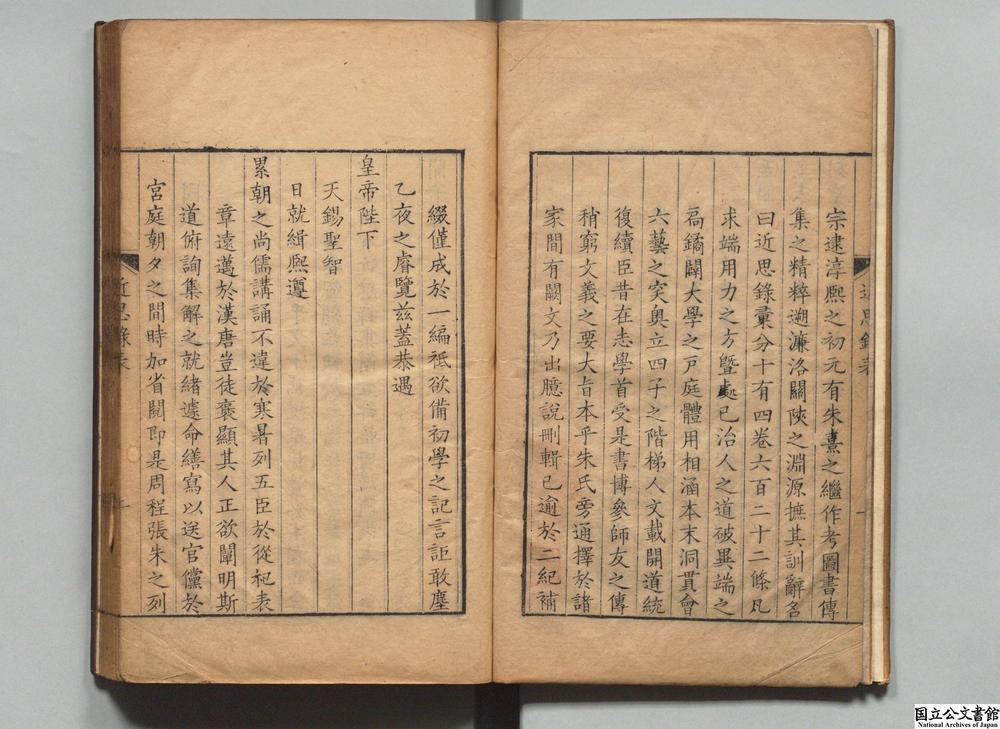 宗逮淳熙之初元有朱熹之繼作考圖書傳
集之精粹遡濂洛關陜之淵源摭其訓辭名
曰近思錄彙分十有四卷六百二十二條凡
求端用力之方曁處已治人之道破異端之
扃鐍闢大學之戸庭體用相涵本末洞貫會
六藝之突奧立四子之階梯人文載開道統
復續臣昔在志學首受是書博參師友之傳
稍窮文義之要大旨本乎朱氏旁通擇於諸
家間有闕文乃出臆說刪輯已逾於二紀補
綴僅成於一編秖欲備初學之記言詎敢塵
乙夜之睿覽兹蓋恭遇
皇帝陛下
天錫聖智
日就緝熙遵
累朝之尚儒講誦不違於寒暑列五臣於從祀表
章遠邁於漢唐豈徒褒顯其人正欲闡明斯
道俯詢集解之就緒遽命繕寫以送官儻於
宮庭朝夕之間時加省閱即是周程張朱之列
近思錄表
近思錄表
国立公文書館
National Archives of Japan